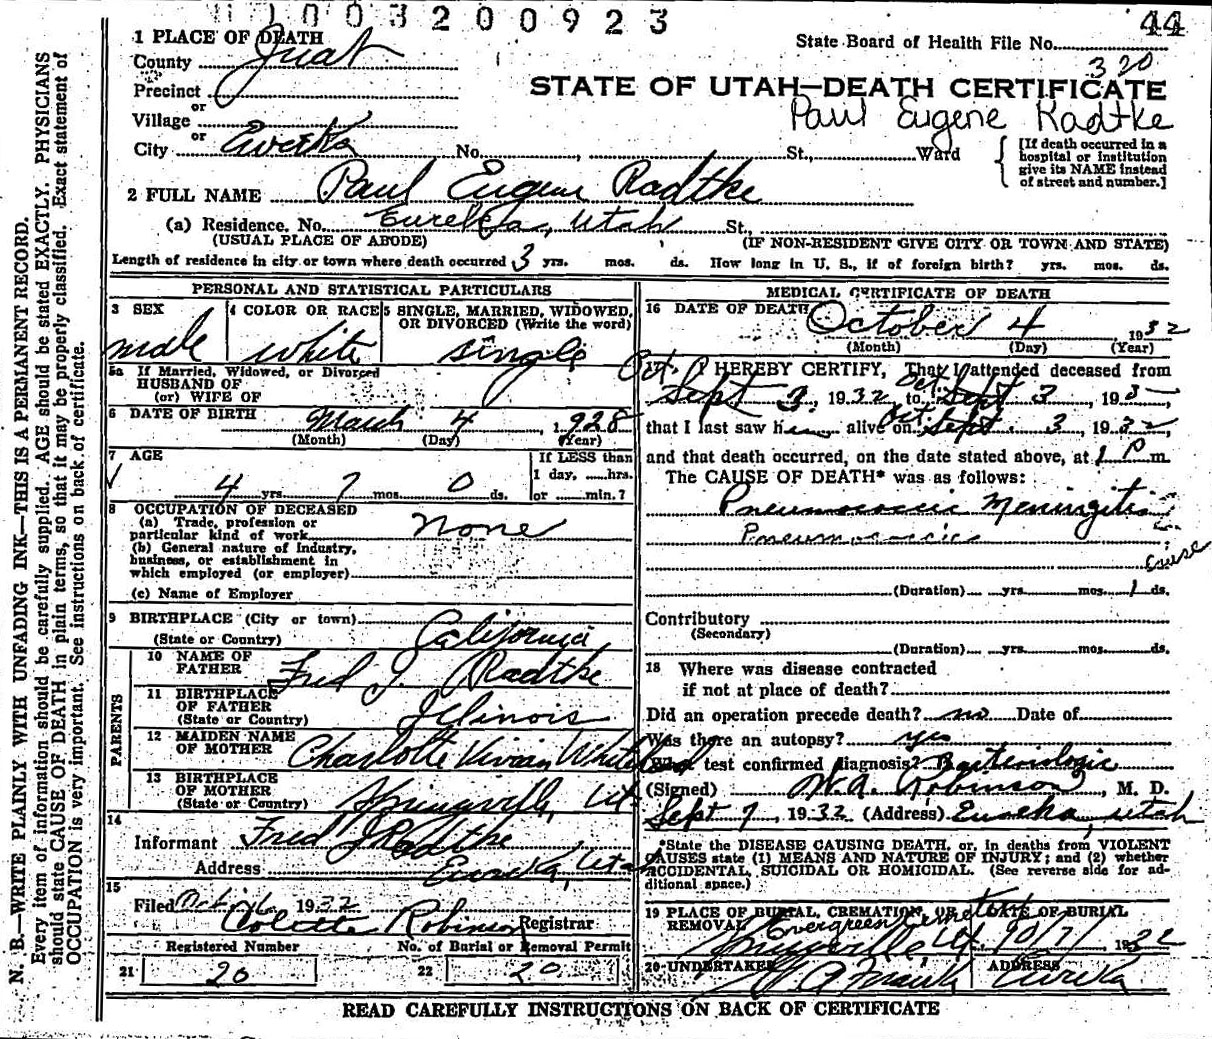 1003200923
44
1 PLACE OF DEATH
State Board of Health File No.
320
County Juab
STATE OF UTAH—DEATH CERTIFICATE
Precinct
Paul Eugene Radtke
or
Village
or
City Eureka No. , St., Ward
[If death occurred in a
hospital or institution
give its NAME instead
of street and number.]
2 FULL NAME Paul Eugene Radtke
(a) Residence. No. Eureka, Utah St.,
(USUAL PLACE OF ABODE) (IF NON-RESIDENT GIVE CITY OR TOWN AND STATE)
Length of residence in city or town where death occurred 3 yrs. mos. ds. How long in U. S., if of foreign birth? yrs. mos. ds.
PERSONAL AND STATISTICAL PARTICULARS
3 SEX 4 COLOR OR RACE 5 SINGLE, MARRIED, WIDOWED,
OR DIVORCED (Write the word)
male white single
5a If Married, Widowed, or Divorced
HUSBAND OF
(or) WIFE OF
6 DATE OF BIRTH March 4, 1928
(Month) (Day) (Year)
7 AGE If LESS than
1 day, hrs.
4 yrs. 7 mos. 0 ds. or min.?
8 OCCUPATION OF DECEASED
(a) Trade, profession or
particular kind of work none
(b) General nature of industry,
business, or establishment in
which employed (or employer)
(c) Name of Employer
9 BIRTHPLACE (City or town)
(State or Country) California
PARENTS
10 NAME OF
FATHER Fred J. Radtke
11 BIRTHPLACE
OF FATHER
(State or Country) Illinois
12 MAIDEN NAME
OF MOTHER Charlotte Vivian
13 BIRTHPLACE
OF MOTHER
(State or Country) Springville, Ut.
14
Informant Fred J Radtke
Address Eureka, Utah
15
Filed 1932
Colette Robinson Registrar
Registered Number No. of Burial or Removal Permit
21 20 22 20
MEDICAL CERTIFICATE OF DEATH
16 DATE OF DEATH October 4 1932
(Month) (Day) (Year)
17 I HEREBY CERTIFY, That I attended deceased from
Oct. Sept 3, 1932, to Oct Sept 3, 193
that I last saw him alive on Oct Sept. 3, 1932,
and that death occurred, on the date stated above, at 1 P m.
The CAUSE OF DEATH* was as follows:
Pneumococcic Meningitis
Pneumococcic
cause
(Duration) yrs. mos. 1 ds.
Contributory
(Secondary)
(Duration) yrs. mos. ds.
18 Where was disease contracted
if not at place of death?
Did an operation precede death? no Date of
Was there an autopsy? yes
What test confirmed diagnosis? Bacteriologic
(Signed) Robinson, M. D.
Sept 7, 1932 (Address) Eureka, Utah
*State the DISEASE CAUSING DEATH, or, in deaths from VIOLENT
CAUSES state (1) MEANS AND NATURE OF INJURY; and (2) whether
ACCIDENTAL, SUICIDAL OR HOMICIDAL. (See reverse side for ad-
ditional space.)
19 PLACE OF BURIAL, CREMATION, OR DATE OF BURIAL
REMOVAL Evergreen Cemetery
Springville, Ut. 10/7/, 1932
20 UNDERTAKER ADDRESS
Eureka
READ CAREFULLY INSTRUCTIONS ON BACK OF CERTIFICATE
N. B.—WRITE PLAINLY WITH UNFADING INK—THIS IS A PERMANENT RECORD.
Every item of information should be carefully supplied. AGE should be stated EXACTLY. PHYSICIANS
should state CAUSE OF DEATH in plain terms, so that it may be properly classified. Exact statement of
OCCUPATION is very important. See instructions on back of certificate.